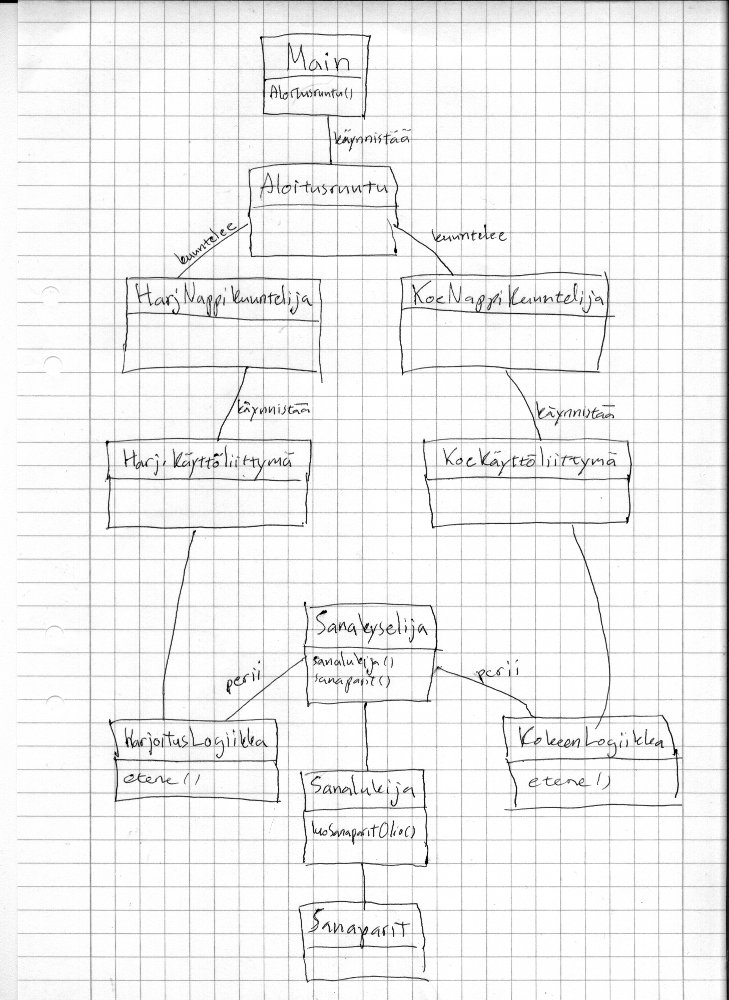 Main
Aloitusruutu()
käynnistää
Aloitusruutu
kuuntelee
kuuntelee
HarjNappiKuuntelija
KoeNappiKuuntelija
käynnistää
käynnistää
HarjKäyttöliittymä
KoeKäyttöliittymä
Sanakyselija
sanalukija()
sanaparit()
perii
perii
HarjoitusLogiikka
etene()
KokeenLogiikka
etene()
Sanalukija
luoSanaparitOlio()
Sanaparit